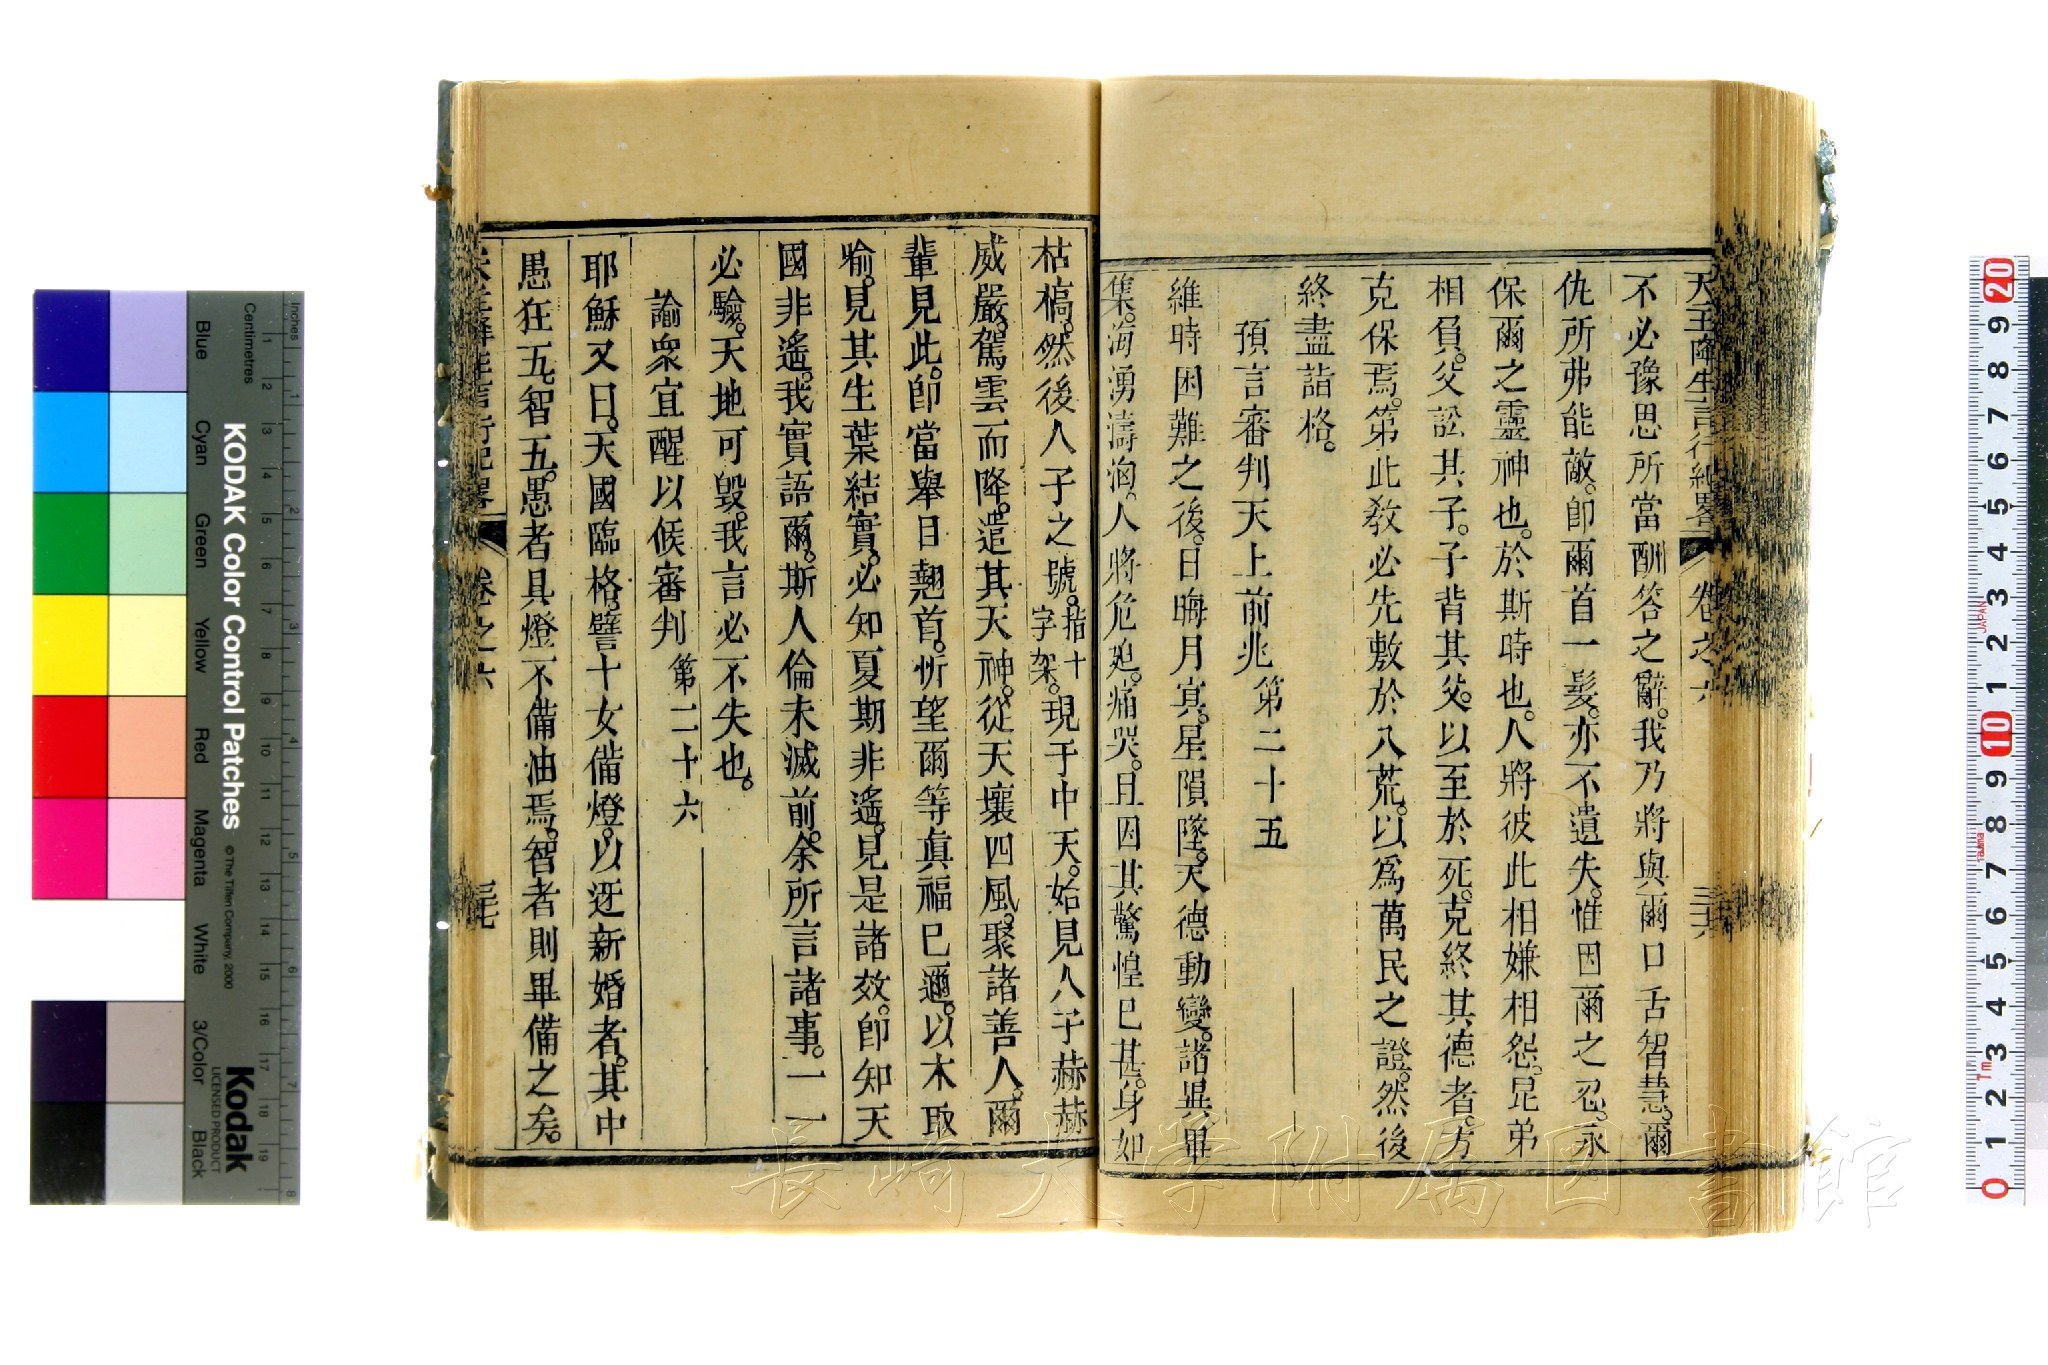 天主降生言行紀畧 卷之六 三十六
不必豫思所當酬答之辭。我乃將與爾口舌智慧。爾
仇所弗能敵。卽爾首一髮。亦不遺失。惟因爾之忍。永
保爾之靈神也。於斯時也。人將彼此相嫌相怨。昆弟
相負。父訟其子。子背其父。以至於死。克終其德者。方
克保焉。第此敎必先敷於八荒。以爲萬民之證。然後
終盡詣格。
預言審判天上前兆 第二十五
維時困難之後。日晦月冥。星隕墜。天德動變。諸異畢
集。海湧濤洶。人將危廹。痛哭。且因其驚惶已甚。身如
枯槁。然後人子之號。指十字架。現于中天。始見人子赫赫
威嚴。駕雲而降。遣其天神。從天壤四風。聚諸善人。爾
輩見此。卽當舉日翹首。忻望爾等眞福已邇。以木取
喻。見其生葉結實。必知夏期非遙。見是諸效。卽知天
國非遙。我實語爾。斯人倫未滅前。余所言諸事。一一
必驗。天地可毀。我言必不失也。
諭衆宜醒以候審判 第二十六
耶穌又曰。天國臨格。譬十女備燈。以迓新婚者。其中
愚狂五。智五。愚者具燈不備油焉。智者則畢備之矣。
天主降生言行紀畧 卷之六 三十七
Inches
Centimetres
KODAK Color Control Patches
© The Tiffen Company, 2000
Blue Cyan Green Yellow Red Magenta White 3/Color Black
Kodak
LICENSED PRODUCT
長崎大学附属図書館
JAPAN